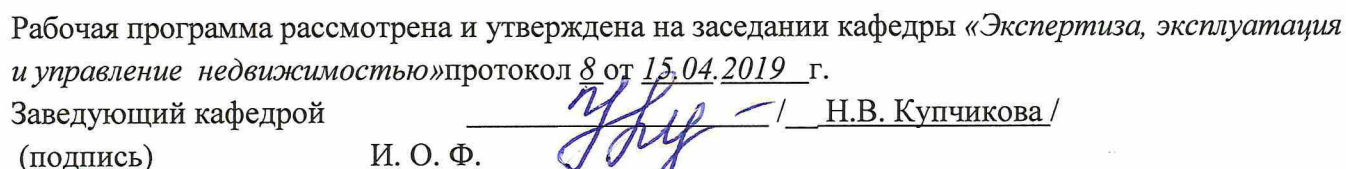 Рабочая программа рассмотрена и утверждена на заседании кафедры «Экспертиза, эксплуатация
и управление недвижимостью»протокол 8 от 15.04.2019 г.
Заведующий кафедрой / Н.В. Купчикова /
(подпись) И. О. Ф.